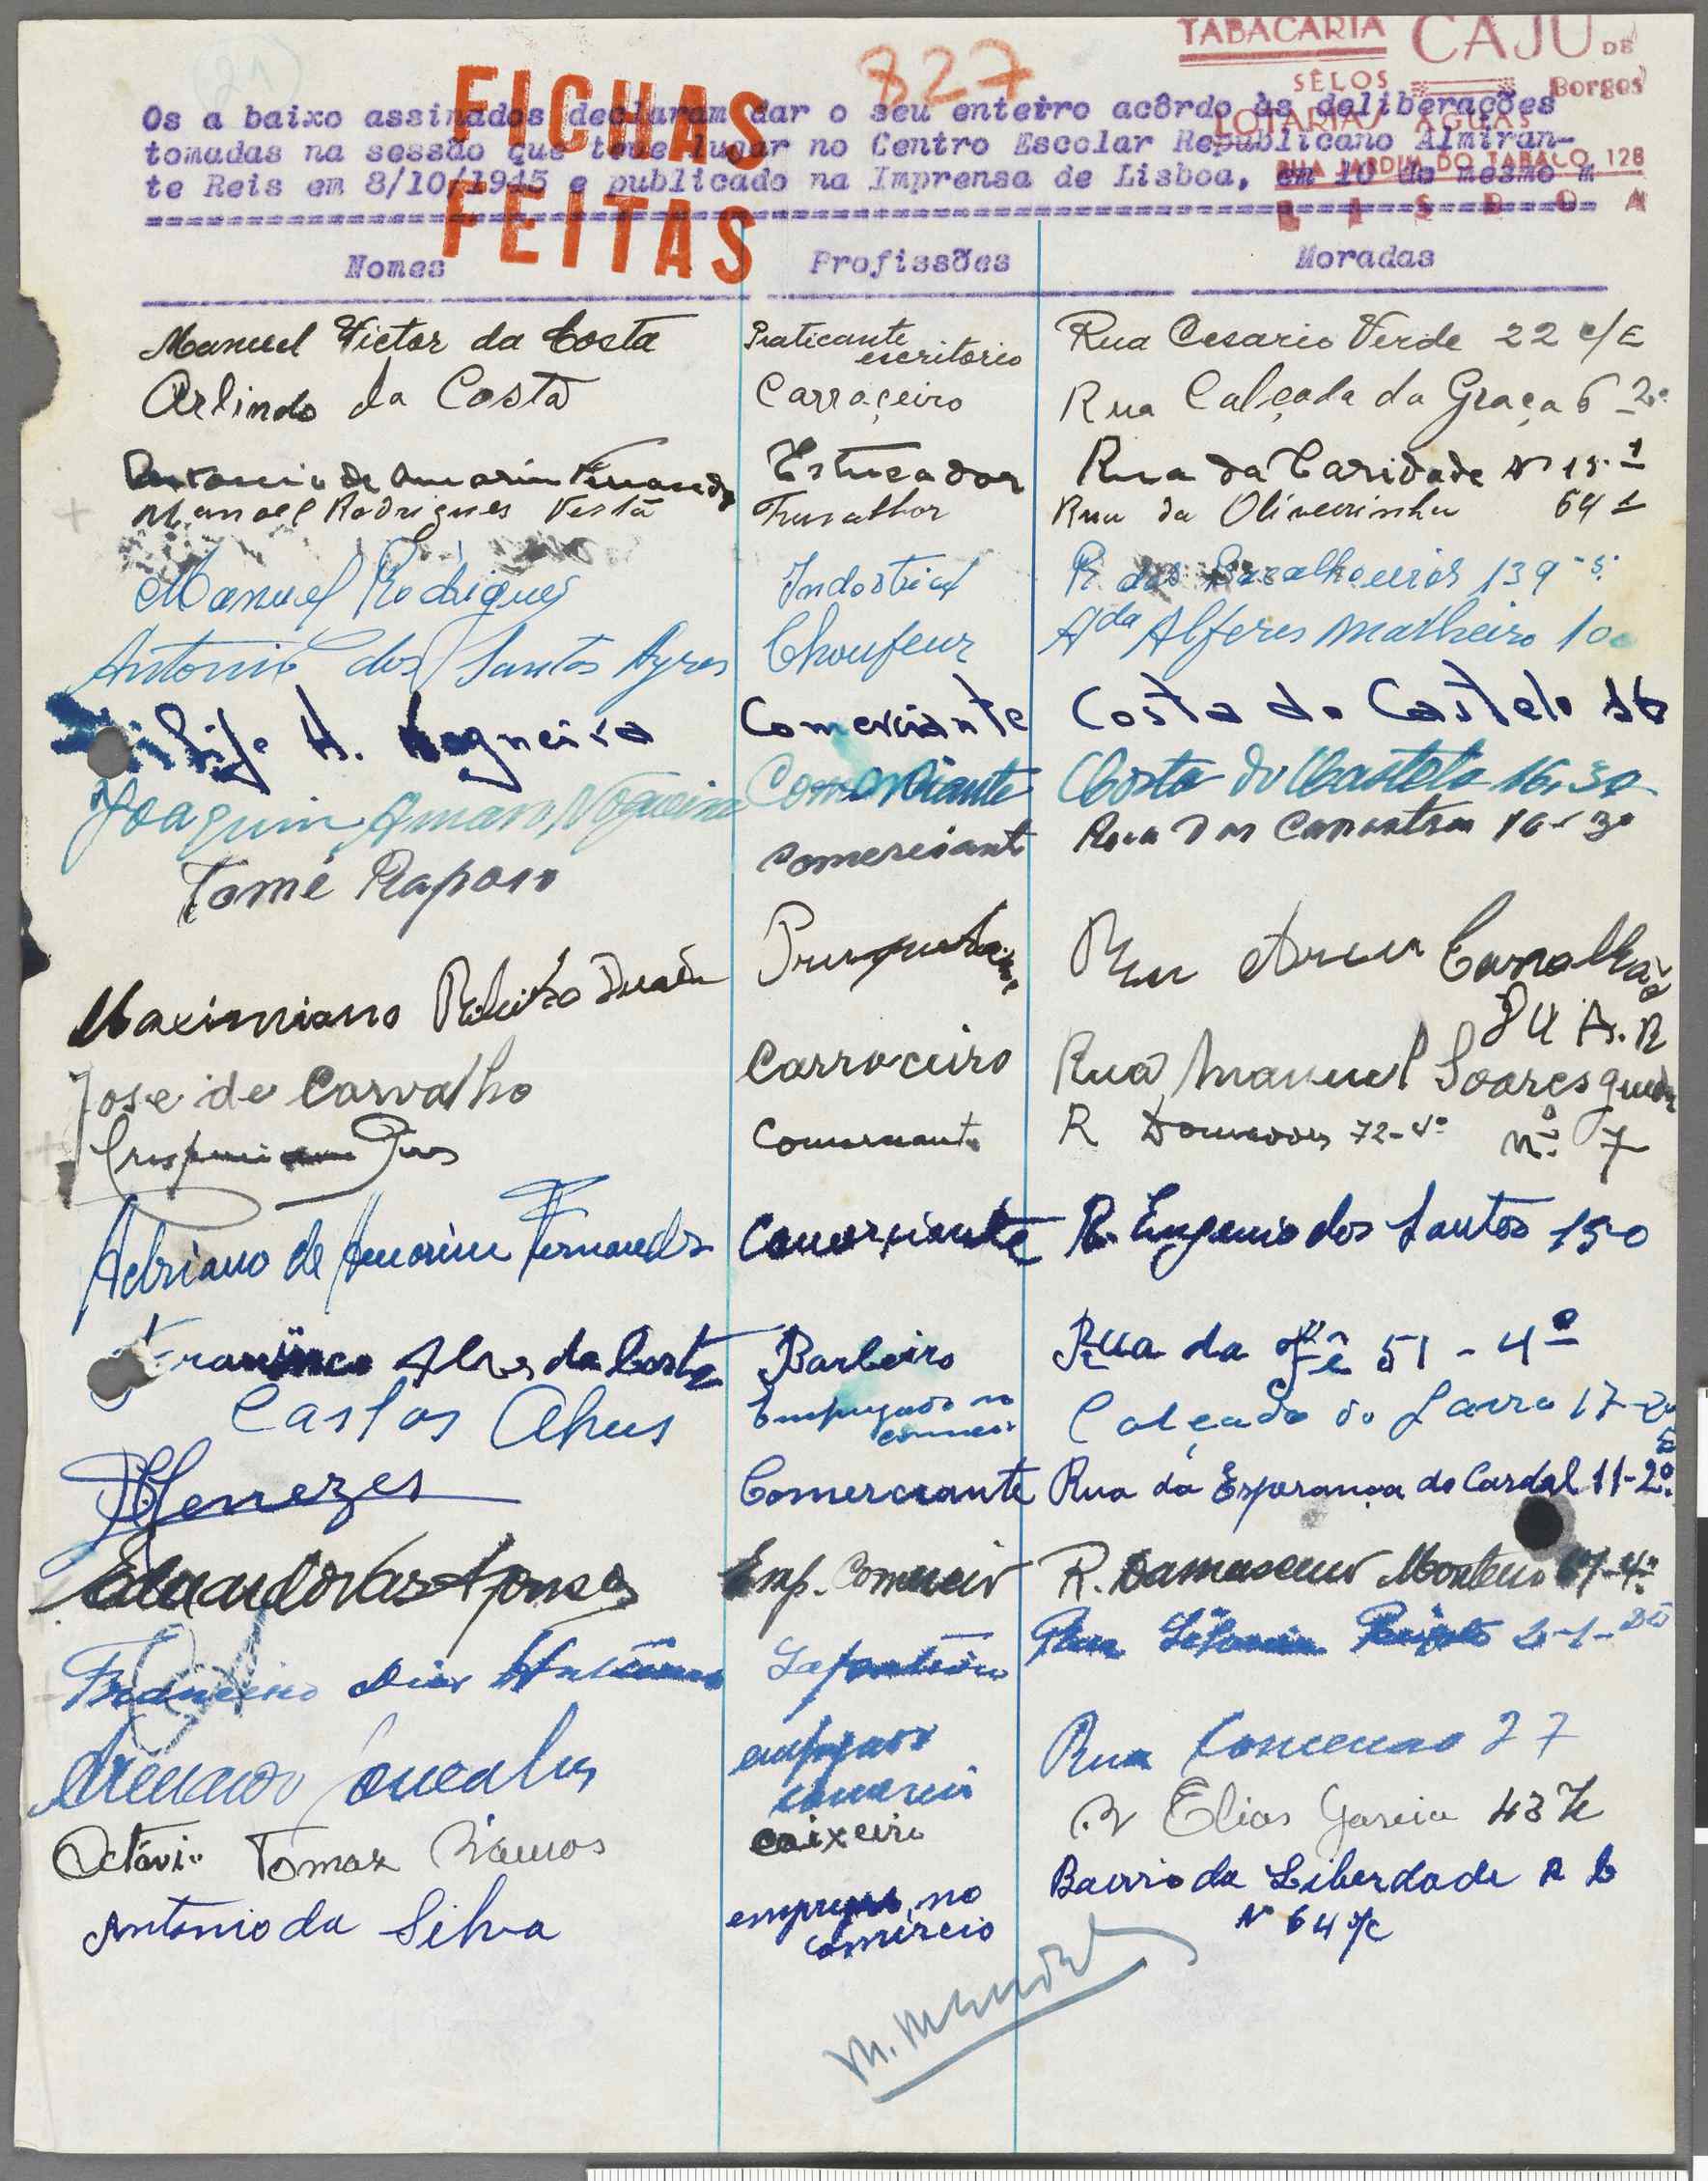 TABACARIA CAJU DE
SÊLOS Borges
LOTARIAS AGUAS
RUA JARDIM DO TABACO, 128
LISBOA
827
FICHAS
FEITAS
Os a baixo assinados declaram dar o seu enteiro acôrdo às deliberações
tomadas na sessão que teve lugar no Centro Escolar Republicano Almiran-
te Reis em 8/10/1945 e publicado na Imprensa de Lisboa, em 10 do mesmo m
Nomes Profissões Moradas
Manuel Victor da Costa Praticante escritorio Rua Cesario Verde 22 c/E
Arlindo da Costa Carraçeiro Rua Calçada da Graça 6 2º
Antonio de Amorim Fernandes Estucador Rua da Caridade Nº 15-1
Manoel Rodrigues Vestã Rua da Oliveirinha 64 1
Manuel Rodrigues Indostrial R. dos 139
Antonio dos Santos Ayres Choufeur Aда Alferes Malheiro
H. Nogueira Comerciante Costa do Castelo 16
Joaquim Amaro Nogueira Comerciante Costa do Castelo 16, 3º
Tomé Raposo comerciante Rua das Canastras 16-3º
Maximiano Ribeiro Duarte Rua Arco Carvalhão
84 A. R
José de Carvalho Carroceiro Rua Manuel Soares Guedes
nº 7
Pires Comerciante R 72-4º
Adriano de Amorim Fernandes Comerciante R. Eugenio dos Santos 150
Francisco Alves da Costa Barbeiro Rua da Fé 51-4º
Carlos Empregado no comercio Calçada do Lavra 17-2º
Menezes Comerciante Rua da Esperança do Cardal 11-2º
Eduardo Vaz Afonso Emp. Comercio R. Damasceno Monteiro 67-4º
Francisco Dias Sapateiro
Armando Goncalves empregado comercio Rua 27
Octávio Tomaz Ramos caixeiro R Elias Garcia
Antonio da Silva empregado no comércio Bairro da Liberdade R L
Nº 64 r/c
M. Mendes